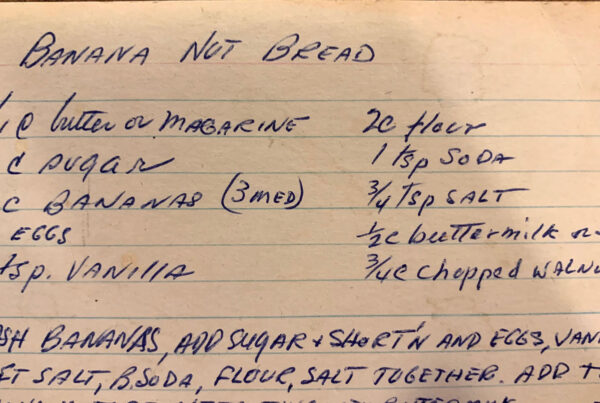 BANANA NUT BREAD
C butter or MAGARINE 2C flour
C SUGAR 1 tsp SODA
C BANANAS (3 MED) 3/4 tsp SALT
EGGS 1/2 C buttermilk or
tsp. VANILLA 3/4 C chopped WALNU
SH BANANAS, ADD SUGAR + SHORT'N AND EGGS, VAN
FT SALT, B.SODA, FLOUR, SALT TOGETHER. ADD T